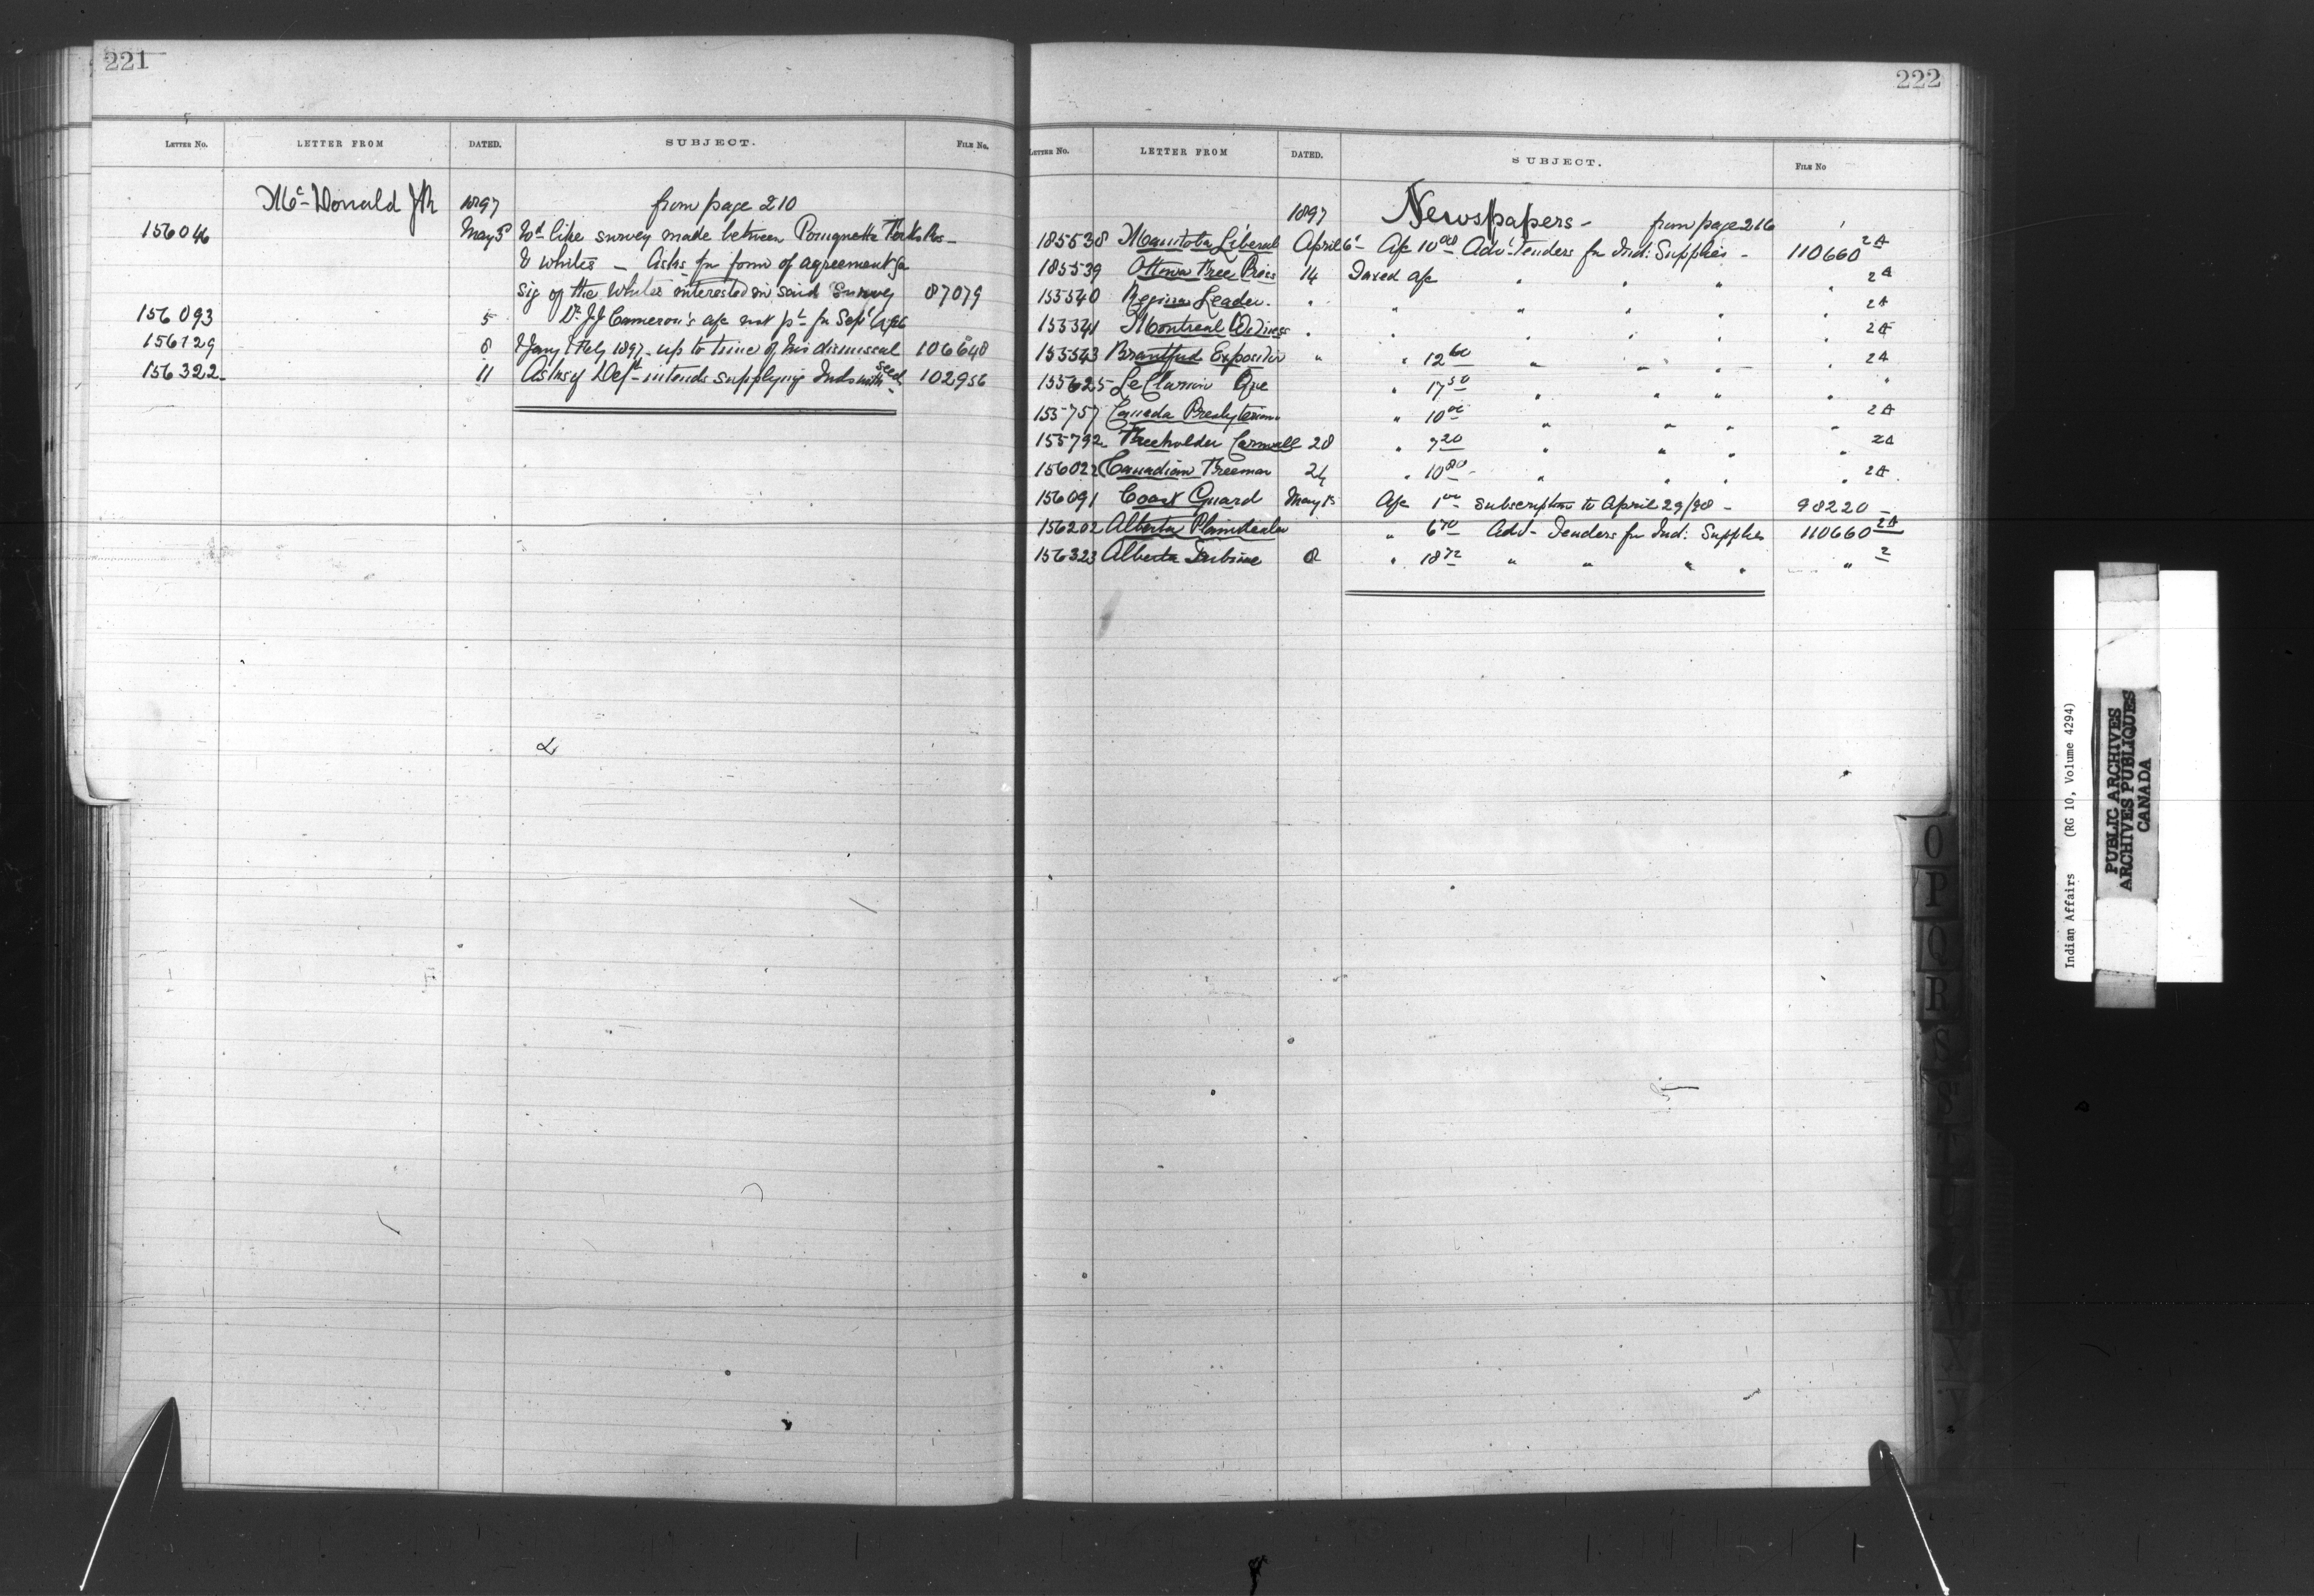 221
LETTER NO. LETTER FROM DATED. SUBJECT. FILE NO.
Mc Donald 1897 from page 210
156046 May 5 Wd like survey made between Pomquette Forks Res-
& whites – Asks for form of agreement for
sig of the whites interested in said Survey 87079
156093 5 Dr. J J Cameron's a/c not pd for Sepr
156129 8 & Jany & Feby 1897 - up to time of his dismissal 106648
156322 11 Asks if Dept intends supplying Inds with seed 102956
222
LETTER NO. LETTER FROM DATED. SUBJECT. FILE NO
1897 Newspapers - from page 216
185538 Manitoba Liberal April 6 A/c 10 00 Advt Tenders for Ind: Supplies - 110660 2A
185539 Ottawa Free Press 14 Taxed a/c " " " " 2A
155540 Regina Leader. " " " " " " 2A
155541 Montreal Witness " " " " " " 2A
155543 Brantford Expositor " " 12 60 " " " " 2A
155625 Le Clairon Que " 17 50 " " " " "
155757 Canada Presbyterian " 10 00 " " " " 2A
155792 Freeholder Cornwall 28 " 7 20 " " " " 2A
156022 Canadian Freeman 24 " 10 80 " " " " 2A
156091 Coast Guard May A/c 1 00 Subscription to April 29/98 - 98220 -
156202 Alberta Plaindealer " 6 70 Advt - Tenders for Ind: Supplies 110660 2A
156323 Alberta Tribune 8 " 18 72 " " " " " 2
O
P
Q
R
S
T
Y
Indian Affairs (RG 10, Volume 4294)
PUBLIC ARCHIVES
ARCHIVES PUBLIQUES
CANADA